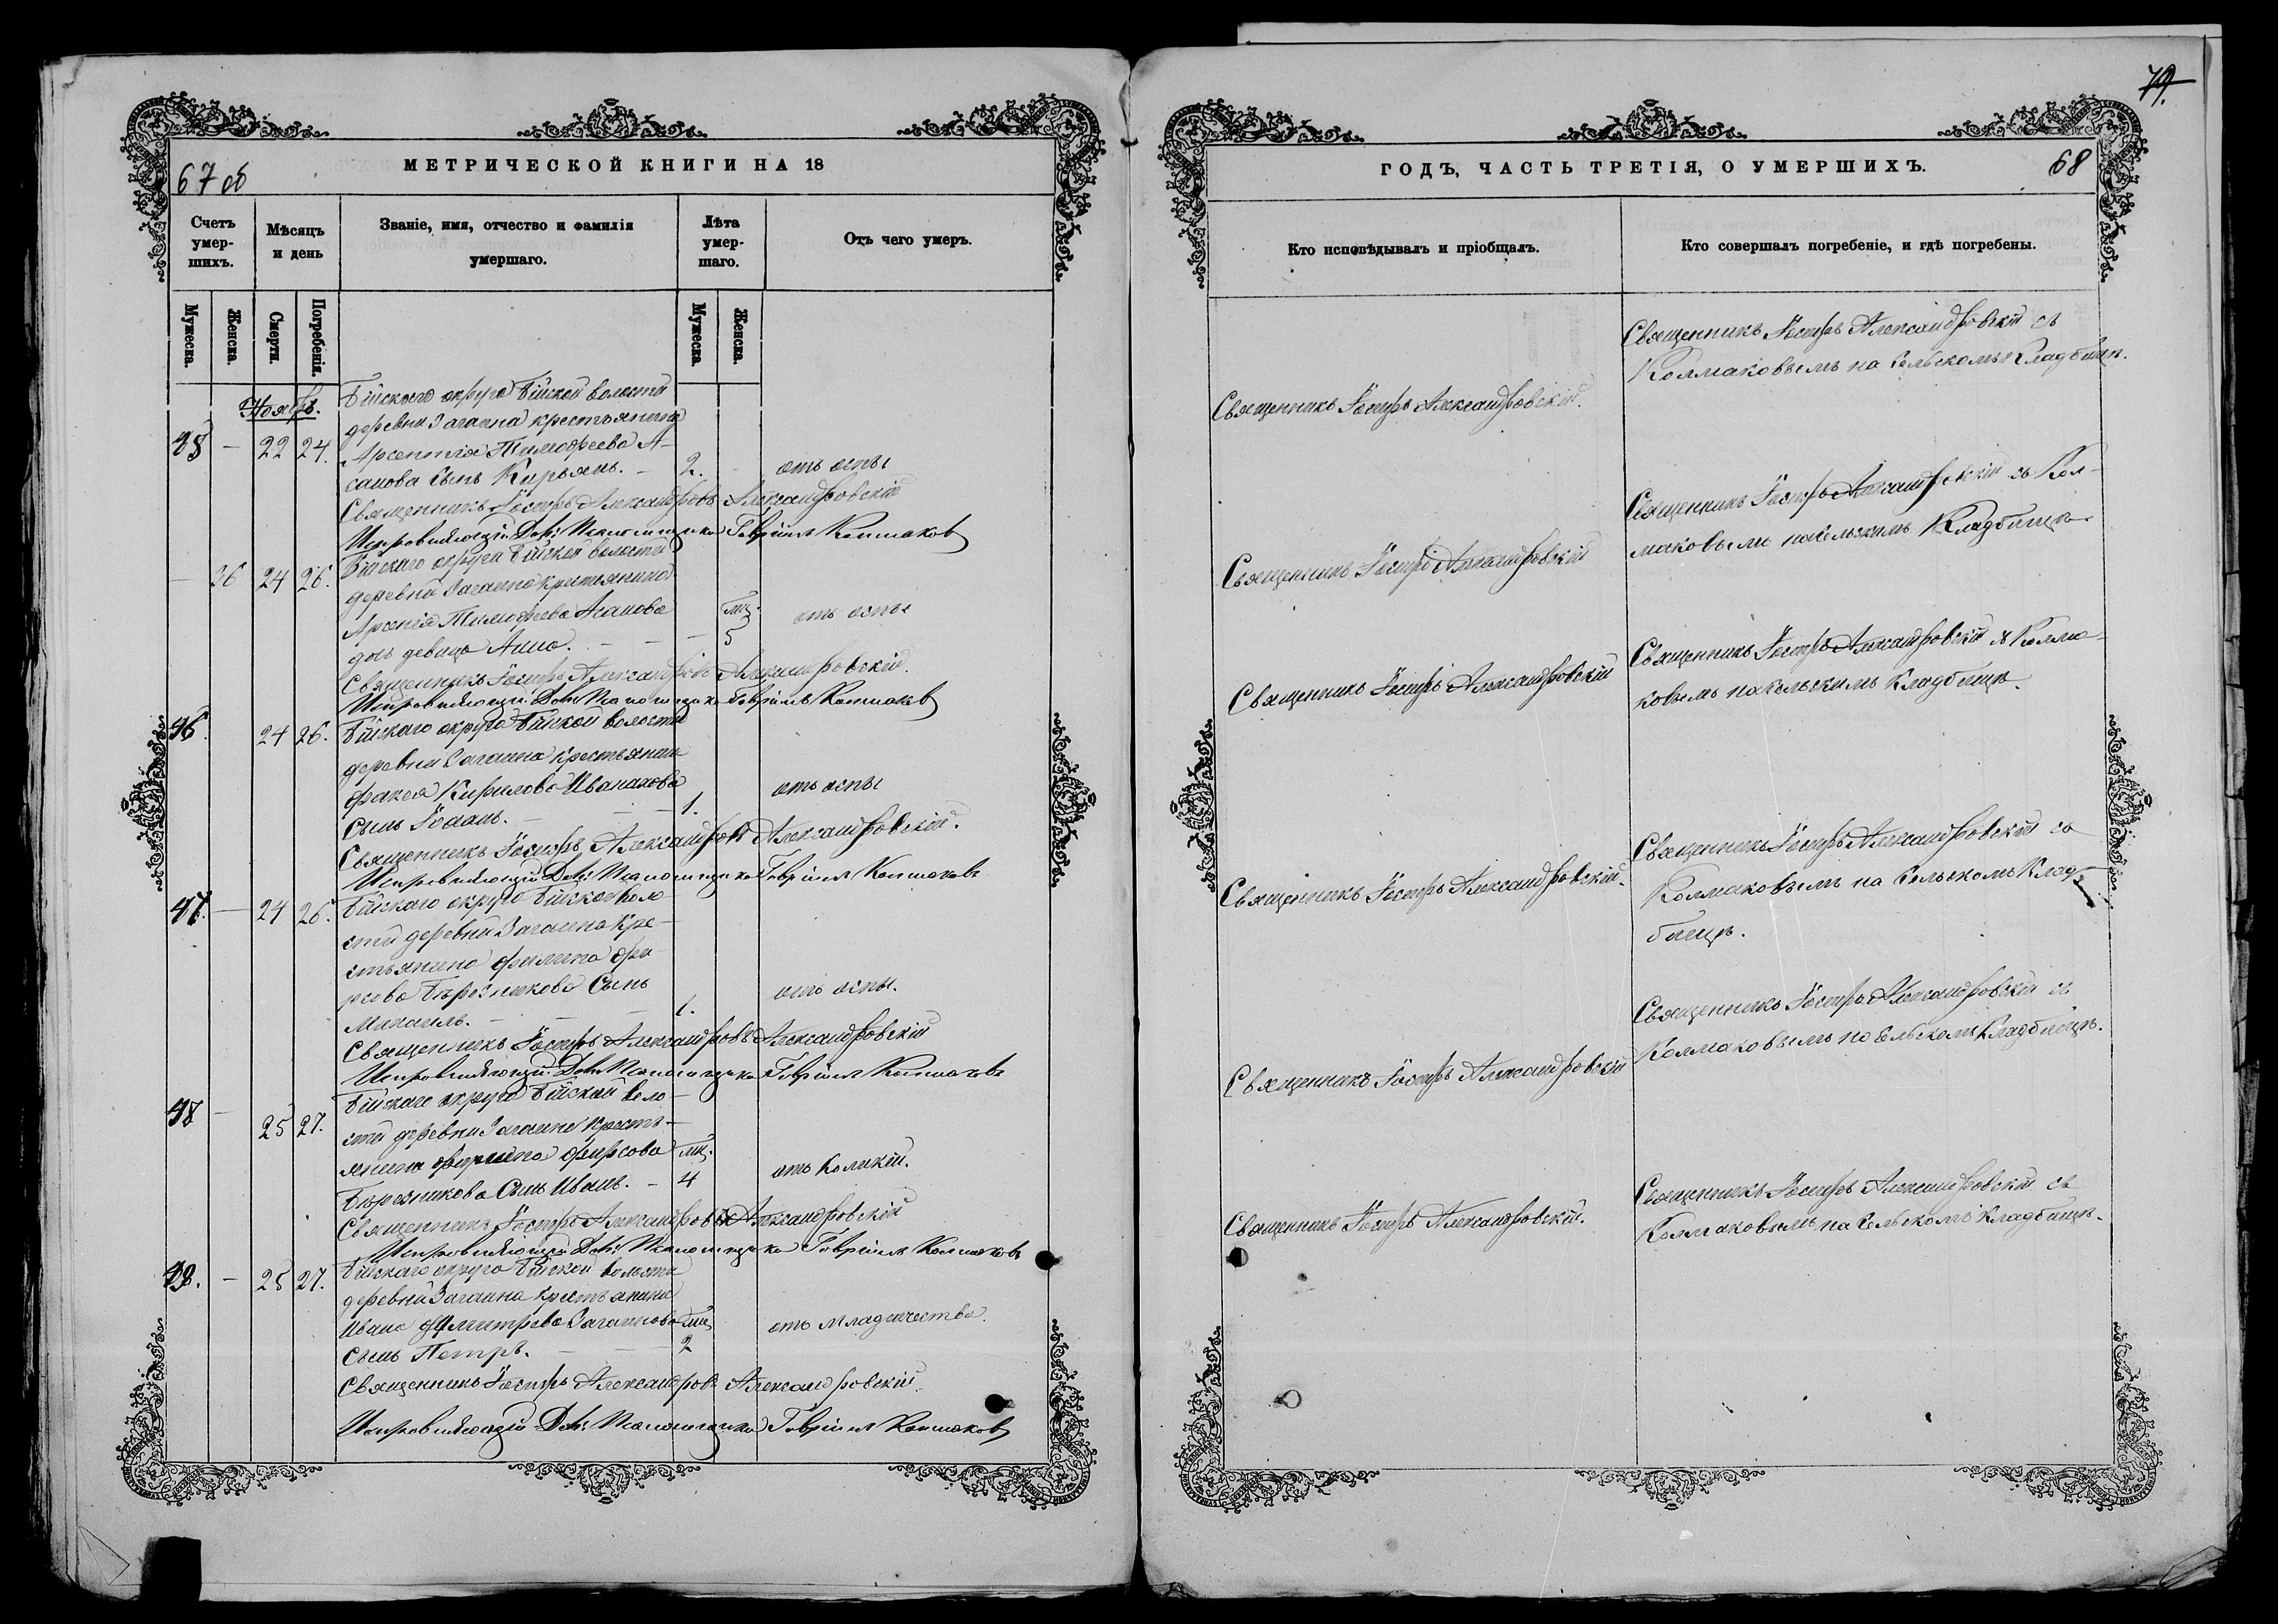 67 об
МЕТРИЧЕСКОЙ КНИГИ НА 18
Счетъ умер-шихъ.
Мѣсяцъ и день
Званіе, имя, отчество и фамилія умершаго.
Лѣта умер-шаго.
Отъ чего умеръ.
Мужеска.
Женска.
Смерти.
Погребенія.
Мужеска.
Женска.
Ноябрь.
Бійскаго округа Бійской волости
деревни Загаина крестьянина
45 — 22 24. Арсентія Тимофеева А-
санова сынъ Кирьянъ. — 2. отъ оспы
Священникъ Іосифъ Александровъ Александровскій
Исправляющій Дол: Псаломщика Гавріилъ Колмаковъ
Бійскаго округа Бійской волости
— 36 24 26. деревни Загаина крестьянина
Арсенія Тимофеева Асанова мц. отъ оспы
дочь девица Анна. — — — 5
Священникъ Іосифъ Александровъ Александровскій.
Исправляющій Дол: Псаломщика Гавріилъ Колмаковъ
46. 24 26. Бійскаго округа Бійской волости
деревни Загаина крестьянина
Кирилова отъ оспы
сынъ — — 1.
Священникъ Іосифъ Александровъ Александровскій.
Исправляющій Дол: Псаломщика Гавріилъ Колмаковъ
47. — 24 26. Бійскаго округа Бійской воло-
сти деревни Загаина кре-
стьянина Филипа Фи-
рсова Березникова сынъ отъ оспы.
Михаилъ. — — — 1.
Священникъ Іосифъ Александровъ Александровскій
Исправляющій Дол: Псаломщика Гавріилъ Колмаковъ
48 — Бійскаго округа Бійской воло-
25 27. сти деревни Загаина кресть-
янина Фирсова мц.
Березникова сынъ Иванъ. — 4 отъ колики.
Священникъ Іосифъ Александровъ Александровскій
Исправляющій Дол: Псаломщика Гавріилъ Колмаковъ
49. — 25 27. Бійскаго округа Бійской волости
деревни Загаина крестьянина
Ивана Дмитрева Загаинова мц отъ младенчества.
сынъ Петръ. — — — 2
Священникъ Іосифъ Александровъ Александровскій.
Исправляющій Дол: Псаломщика Гавріилъ Колмаковъ
79.
ГОДЪ, ЧАСТЬ ТРЕТІЯ, О УМЕРШИХЪ.
68
Кто исповѣдывалъ и пріобщалъ.
Кто совершалъ погребеніе, и гдѣ погребены.
Священникъ Іосифъ Александровскій съ
Колмаковымъ на сельскомъ кладбищѣ.
Священникъ Іосифъ Александровскій.
Священникъ Іосифъ Александровскій съ Кол-
маковымъ на сельскимъ кладбищѣ.
Священникъ Іосифъ Александровскій
Священникъ Іосифъ Александровскій съ Колма-
ковымъ на сельскимъ кладбищѣ.
Священникъ Іосифъ Александровскій
Священникъ Іосифъ Александровскій съ
Колмаковымъ на сельскомъ клад-
бищѣ.
Священникъ Іосифъ Александровскій.
Священникъ Іосифъ Александровскій съ
Колмаковымъ на сельскомъ кладбищѣ.
Священникъ Іосифъ Александровскій
Священникъ Іосифъ Александровскій съ
Колмаковымъ на сельскомъ кладбищѣ.
Священникъ Іосифъ Александровскій.